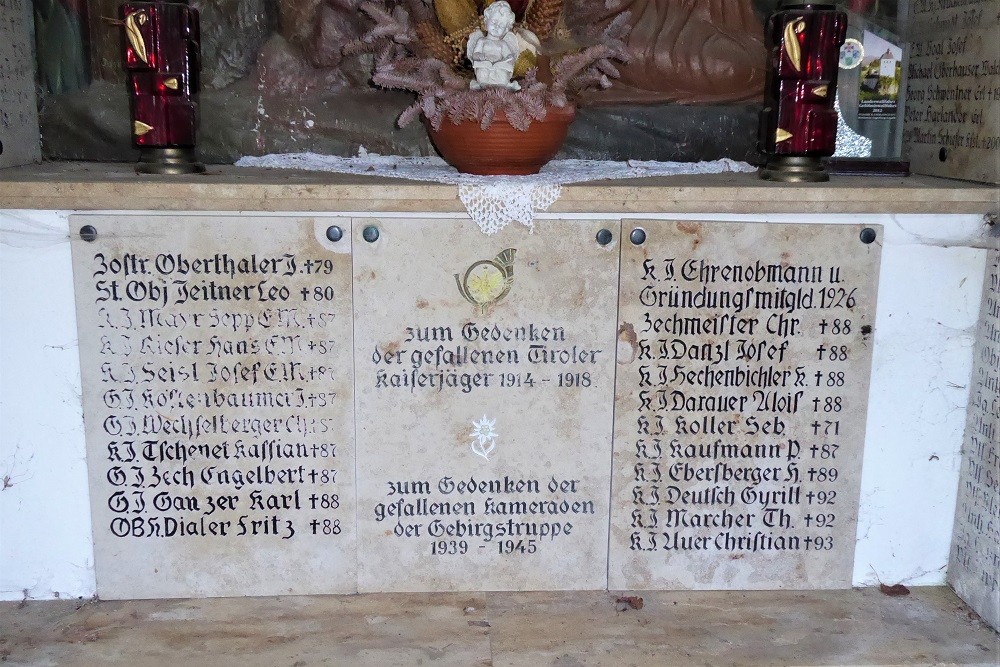 Zostr. Oberthaler J. †79
St. Obj Jeitner Leo †80
K.J. Mayr Sepp E.M. †87
K.J. Rieser Hans E.M. †87
K.J. Seisl Josef E.M. †87
G.J. Kostenbaumer J. †87
G.J. Wechselberger Chr.
K.J. Tschenet Kassian †87
G.J. Zech Engelbert †87
G.J. Ganzer Karl †88
OBK. Dialer Fritz †88
zum Gedenken
der gefallenen Tiroler
Kaiserjäger 1914 - 1918.
zum Gedenken der
gefallenen Kameraden
der Gebirgstruppe
1939 - 1945
K.J. Ehrenobmann u.
Gründungsmitgld. 1926
Zechmeister Chr. †88
K.J. Danzl Josef †88
K.J. Hechenbichler K. †88
K.J. Darauer Alois †88
K.J. Koller Seb †71
K.J. Kaufmann P. †87
K.J. Ebersberger H. †89
K.J. Deutsch Gyrill †92
K.J. Marcher Th. †92
K.J. Auer Christian †93
Josef
Michael Oberhauser
Georg Schwentner Erl
Peter
Martin Schafer